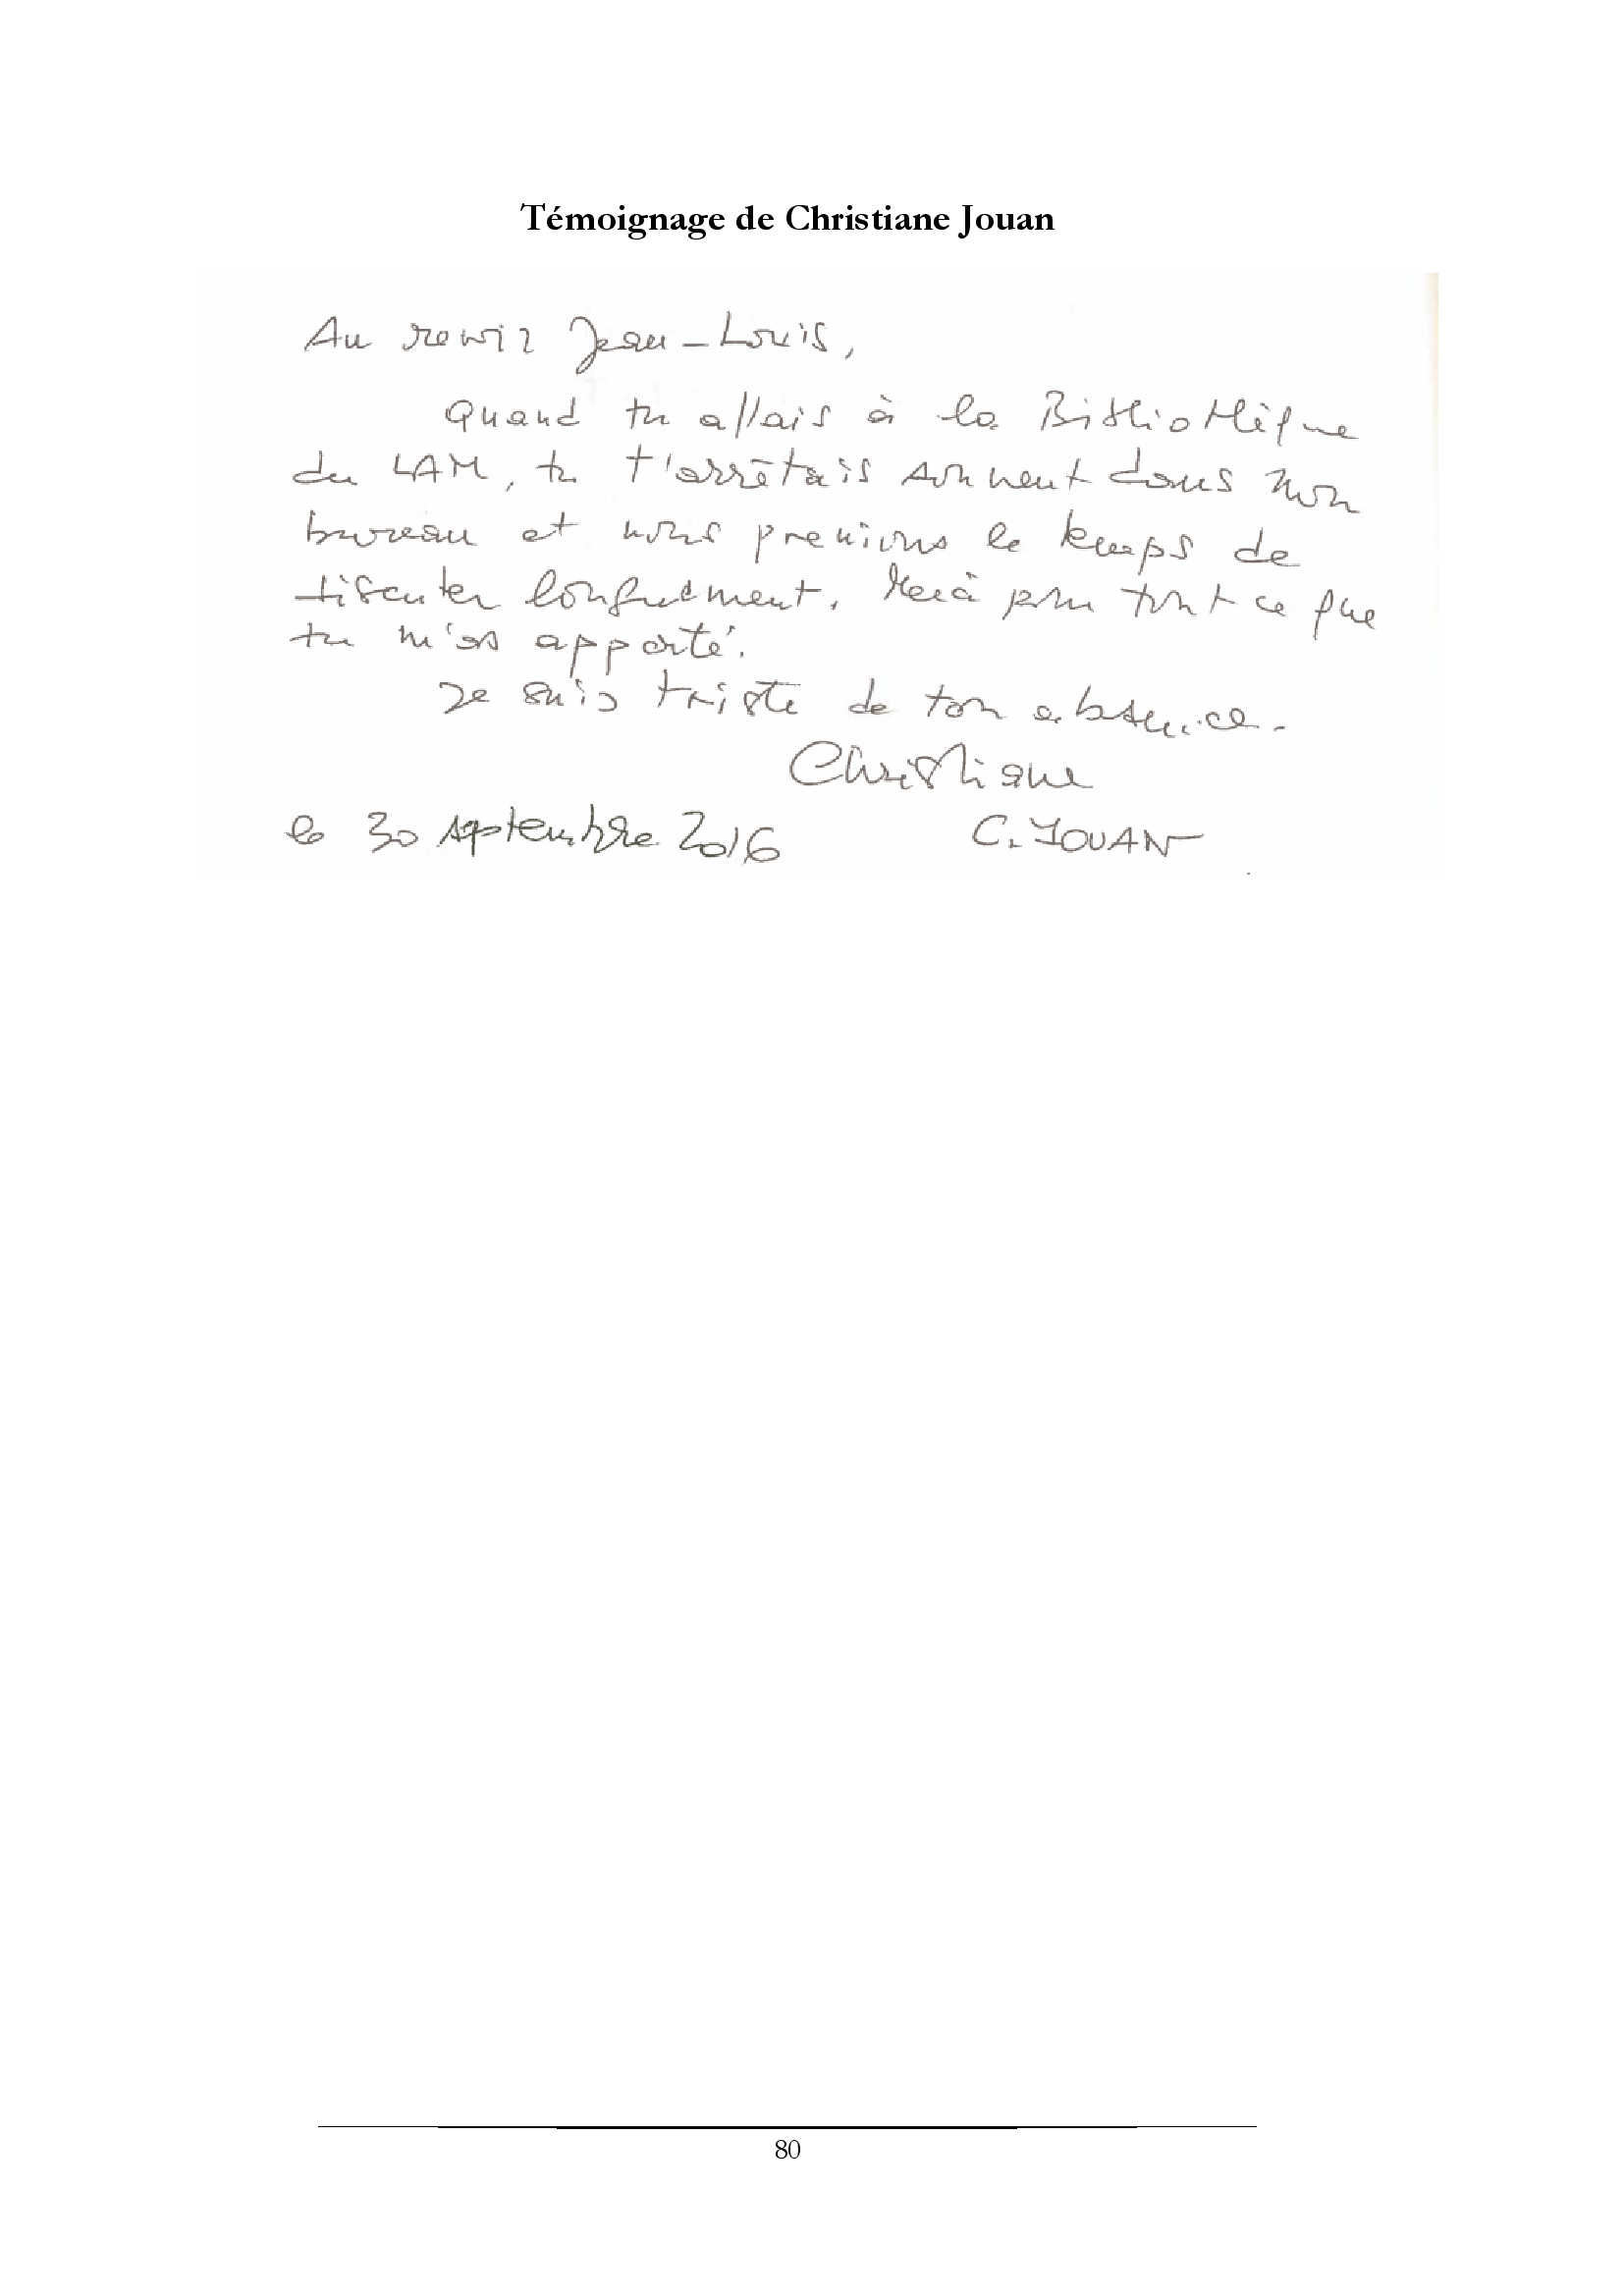 Témoignage de Christiane Jouan
Au revoir Jean-Louis,
Quand tu allais à la Bibliothèque
du LAM, tu t'arrêtais souvent dans mon
bureau et nous prenions le temps de
discuter longuement. Merci pour tout ce que
tu m'as apporté.
Je suis triste de ton absence.
Christiane
le 30 septembre 2016 C. JOUAN
80